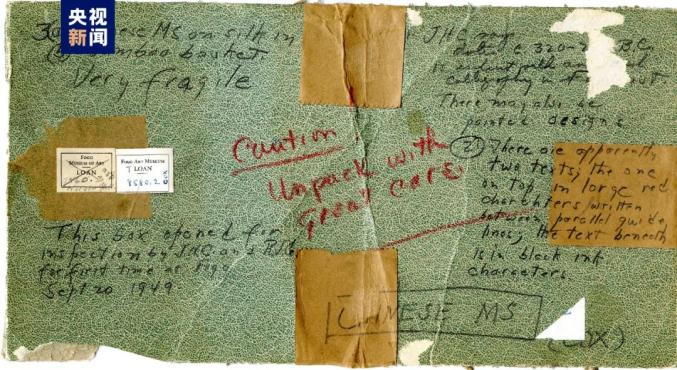 央视
新闻
Chinese MS on silk in
bamboo basket.
Very fragile
FOGG
MUSEUM OF ART
LOAN
FOGG ART MUSEUM
T LOAN
8580.2
COX
This box opened for
inspection by
for first time at Fogg
Sept 20 1949
Caution
Unpack with
great care.
THE
B.C.
There may also be
painted designs
② There are apparently
two texts; the one
on top in large red
characters written
between parallel guide
lines; the text beneath
is in black ink
characters
CHINESE MS
(COX)